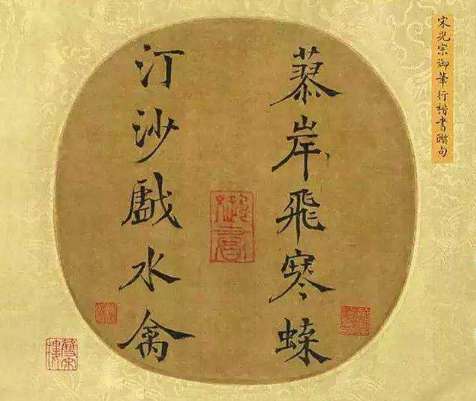 宋光宗御筆行楷書聯句
蓼岸飛寒蝶
汀沙戲水禽
御書